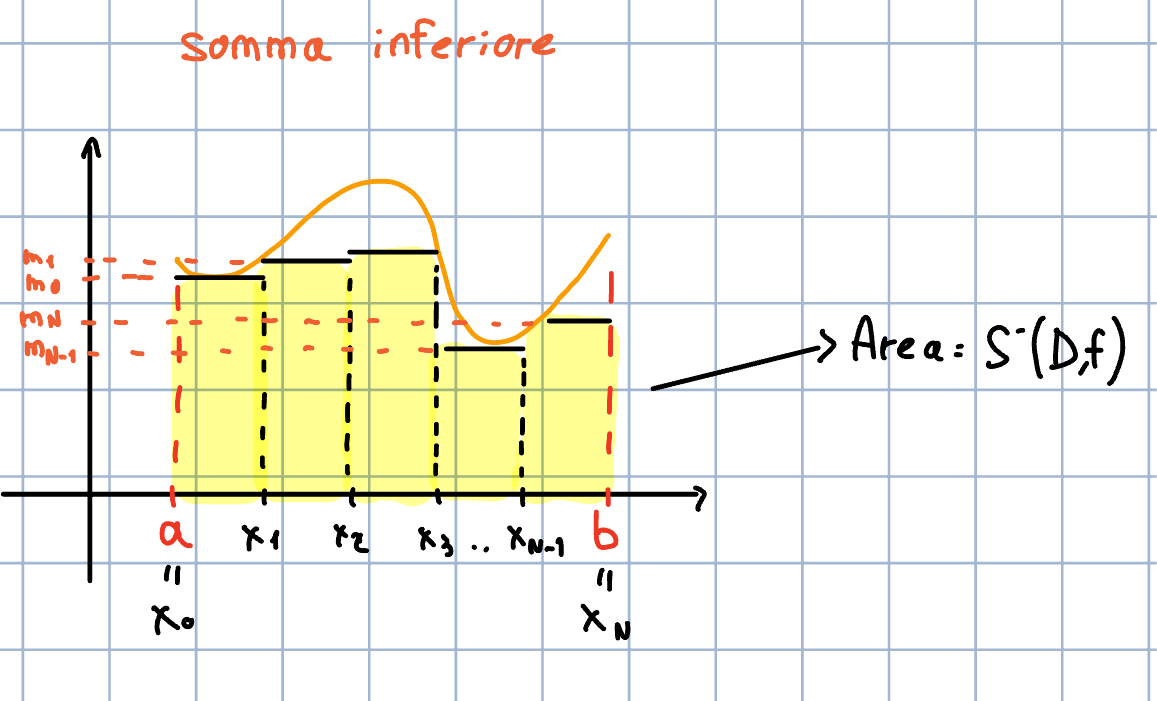 somma inferiore
m₁
m₀
m_N
m_{N-1}
Area = S⁻(D,f)
a x₁ x₂ x₃ .. x_{N-1} b
= =
x₀ x_N